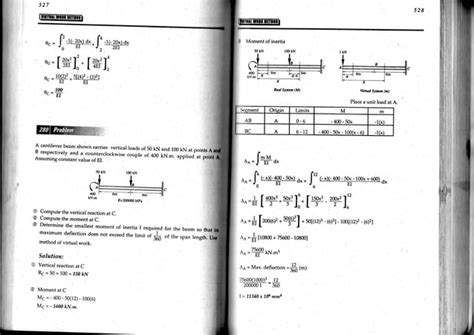 527
VIRTUAL WORK METHOD
θC = ∫₀² -1(-20x) dx / EI + ∫₂⁴ -1(-20x) dx / 2EI
θC = [20x² / 2EI]₀² + [20x² / 4EI]₂⁴
θC = 10(2)² / EI + 5[(4)² - (2)²] / EI
θC = 100 / EI
280 Problem
A cantilever beam shown carries vertical loads of 50 kN and 100 kN at points A and
B respectively and a counterclockwise couple of 400 kN.m. applied at point A.
Assuming constant value of EI.
50 kN 100 kN
A B C
400 kN.m
6m 6m
E=200000 MPa
① Compute the vertical reaction at C.
② Compute the moment at C.
③ Determine the smallest moment of inertia I required for the beam so that its
maximum deflection does not exceed the limit of 1/360 of the span length. Use
method of virtual work.
Solution:
① Vertical reaction at C
RC = 50 + 100 = 150 kN
② Moment at C
MC = - 400 - 50(12) - 100(6)
MC = - 1600 kN.m.
528
VIRTUAL WORK METHOD
Moment of inertia
50 kN 100 kN
6m 6m 6m 6m
Real System (M) Virtual System (m)
Place a unit load at A.
Segment Origin Limits M m
AB A 0 - 6 - 400 - 50x -1(x)
BC A 6 - 12 - 400 - 50x - 100(x - 6) -1(x)
ΔA = ∫ m M / EI dx
ΔA = ∫₀⁶ (-x)(- 400 - 50x) dx / EI + ∫₆¹² (-x)(- 400 - 50x - 100x + 600) dx / EI
ΔA = 1/EI [400x² / 2 + 50x³ / 3]₀⁶ + [150x³ / 3 - 200x² / 2]₆¹²
ΔA = 1/EI [200(6)² + 50(6)³ / 3] + 50[(12)³ - (6)³] - 100[(12)² - (6)²]
ΔA = 1/EI [10800 + 75600 - 10800]
ΔA = 75600 / EI kN.m³
ΔA = Max. deflection = 12/360 (m)
75600(1000)³ / 200000 I = 12/360
I = 11340 x 10⁶ mm⁴